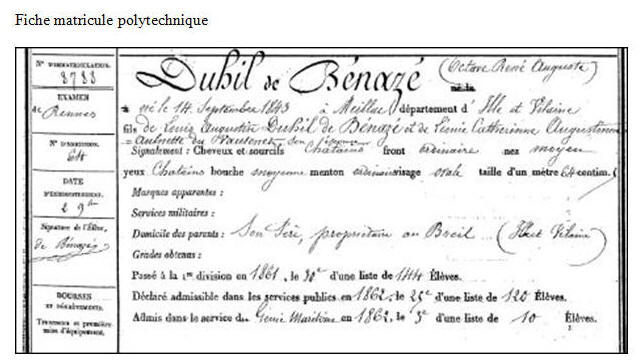 Fiche matricule polytechnique
N° D'IMMATRICULATION.
8788
EXAMEN
de Rennes
N° D'ADMISSION
64
DATE
D'ENREGISTREMENT.
2 9bre
Signature de l'Élève,
de Bénazé
BOURSES
ET DÉGRÈVEMENTS.
Trousseau et première mise d'équipement.
Duhil de Bénazé (Octave René Auguste)
né le 14 Septembre 1843 à Meillac département d'Ille et Vilaine
fils de Louis Augustin Duhil de Bénazé et de Lucie Catherinne Augustinne
son épouse
Signalement : Cheveux et sourcils Chatains front ordinaire nez moyen
yeux Chatains bouche moyenne menton ordinaire visage ovale taille d'un mètre 64 centim.
Marques apparentes :
Services militaires :
Domicile des parents : Son Père, propriétaire au Breil (Ille et Vilaine)
Grades obtenus :
Passé à la 1re division en 1861, le 30e d'une liste de 144 Élèves.
Déclaré admissible dans les services publics en 1862, le 25e d'une liste de 120 Élèves.
Admis dans le service du Génie Maritime en 1862, le 5e d'une liste de 10 Élèves.